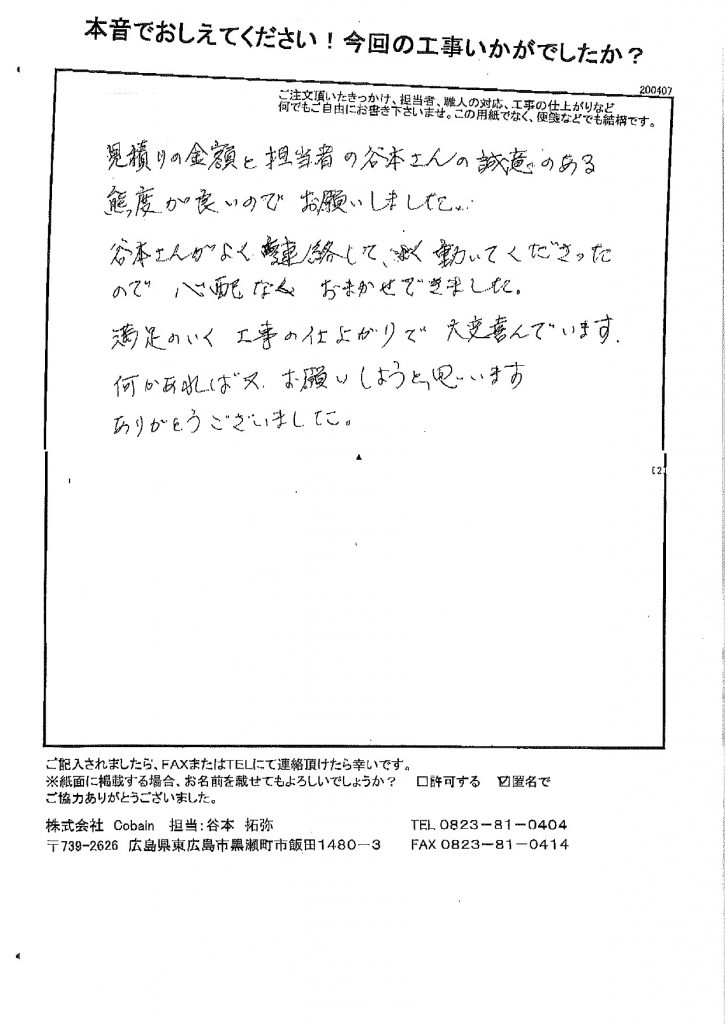 本音でおしえてください！今回の工事いかがでしたか？
200407
ご注文頂いたきっかけ、担当者、職人の対応、工事の仕上がりなど
何でもご自由にお書き下さいませ。この用紙でなく、便箋などでも結構です。
見積りの金額と担当者の谷本さんの誠意のある
態度が良いのでお願いしました。
谷本さんがよく連絡して、よく動いてくださった
ので心配なくおまかせできました。
満足のいく工事の仕上がりで大変喜んでいます。
何かあれば又、お願いしようと思います
ありがとうございました。
[2]
ご記入されましたら、FAXまたはTELにて連絡頂けたら幸いです。
※紙面に掲載する場合、お名前を載せてもよろしいでしょうか？ □許可する ☑匿名で
ご協力ありがとうございました。
株式会社 Cobain 担当：谷本 拓弥 TEL 0823-81-0404
〒739-2626 広島県東広島市黒瀬町市飯田1480-3 FAX 0823-81-0414